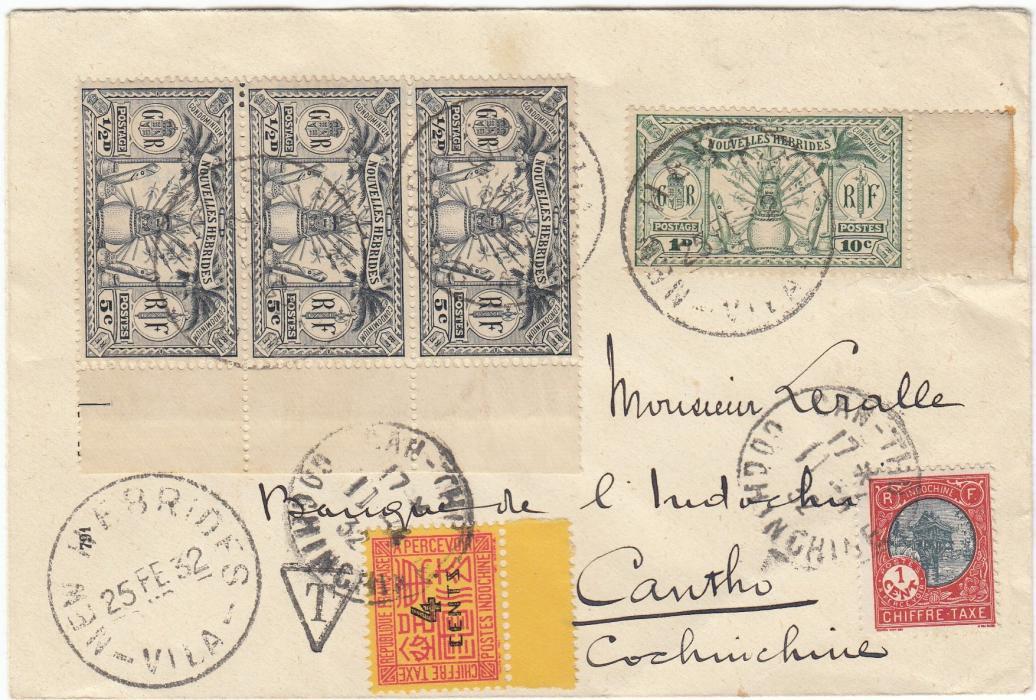 CONDOMINIUM
POSTAGE ½D
G R
NOUVELLES HEBRIDES
R F
POSTES 5c
CONDOMINIUM
POSTAGE ½D
G R
NOUVELLES HEBRIDES
R F
POSTES 5c
CONDOMINIUM
POSTAGE ½D
G R
NOUVELLES HEBRIDES
R F
POSTES 5c
NOUVELLES HEBRIDES
CONDOMINIUM
G R
R F
POSTAGE
POSTES
1D
10c
Monsieur Leralle
Banque de l'Indochine
Cantho
Cochinchine
CAN-THO
17
COCHINCHINE
CAN-THO
17
COCHINCHINE
R INDOCHINE F
POSTES
1
CENT
A PERCEVOIR
CHIFFRE-TAXE
NEW HEBRIDES
791
25 FE 32
-VILA-
T
A PERCEVOIR
RÉPUBLIQUE FRANÇAISE
4
CENTS
POSTES INDOCHINE
CHIFFRE TAXE